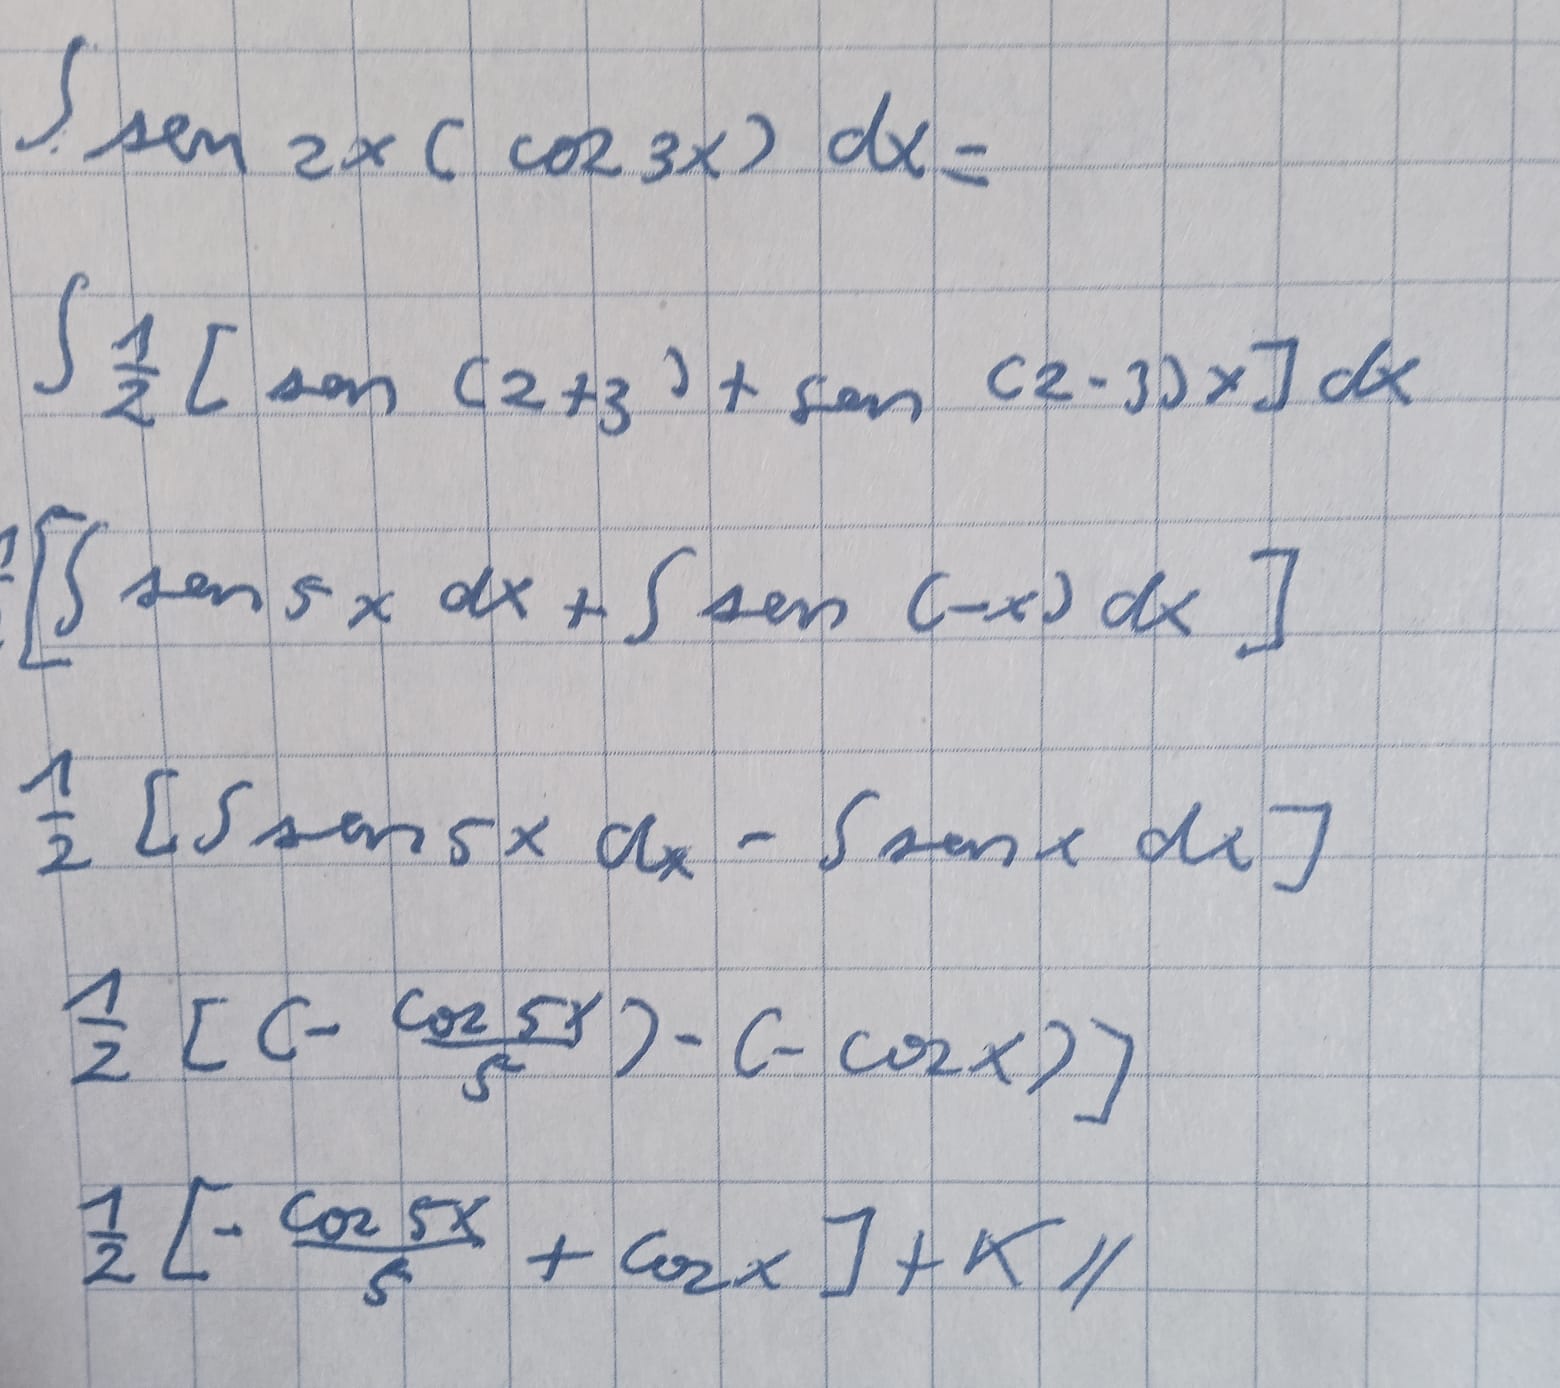 ∫ sen 2x ( cos 3x ) dx =
∫ 1/2 [ sen (2+3 ) + sen (2-3)x ] dx
1/ [ ∫ sen 5x dx + ∫ sen (-x) dx ]
1/2 [ ∫ sen 5x dx - ∫ sen x dx ]
1/2 [ (- cos 5x/5 ) - (- cos x) ]
1/2 [ - cos 5x/5 + cos x ] + K //